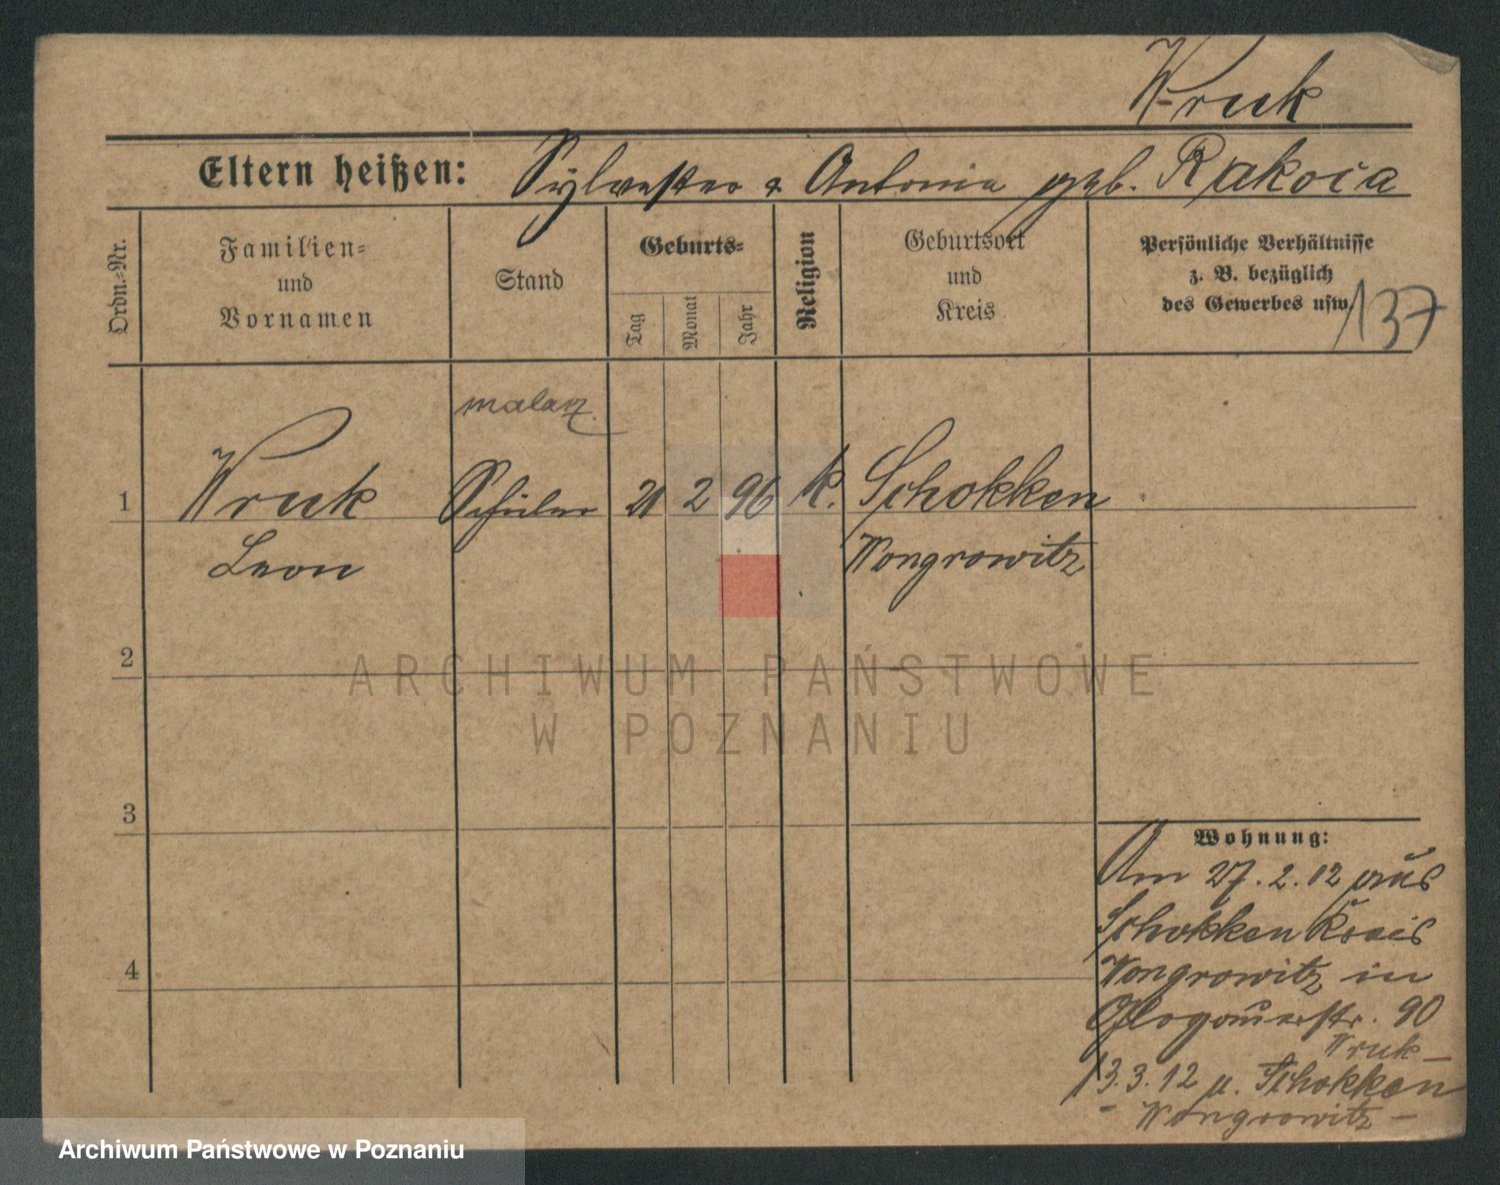 Wruk
Eltern heißen: Sylvester & Antonia geb. Rakoća
Ordn.-Nr.
Familien-
und
Vornamen
Stand
Geburts-
Tag
Monat
Jahr
Religion
Geburtsort
und
Kreis
Persönliche Verhältnisse
z. B. bezüglich
des Gewerbes usw.
137
malarz
1 Wruk Schüler 21 2 96 k. Schokken
Leon Wongrowitz
2
ARCHIWUM PAŃSTWOWE
W POZNANIU
3
Wohnung:
Am 27.2.12 aus
Schokken Kreis
Wongrowitz in
4
Glogauerstr. 90
Wruk –
13.3.12 n. Schokken
– Wongrowitz –
Archiwum Państwowe w Poznaniu